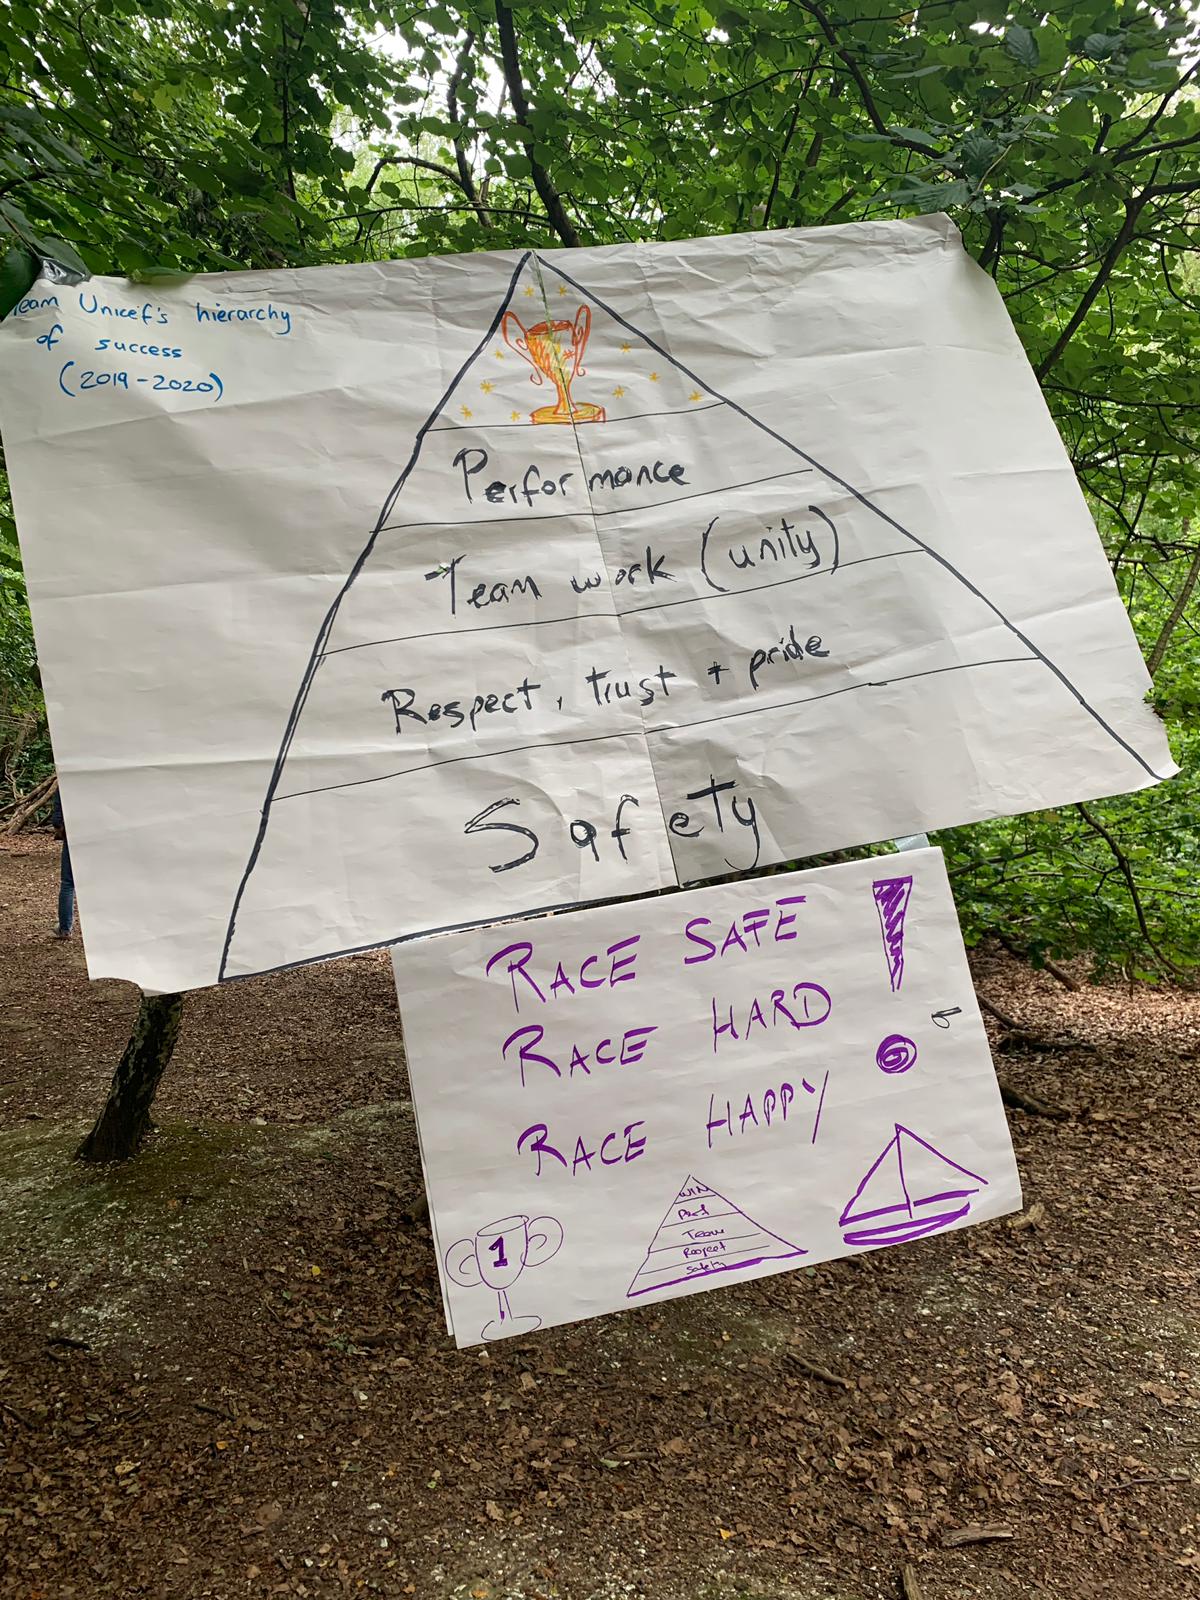 Team Unicef's hierarchy
of success
(2019-2020)
Performance
Team work (unity)
Respect, trust + pride
Safety
RACE SAFE
RACE HARD
RACE HAPPY
!
1
WIN
Perf
Team
Respect
Safety